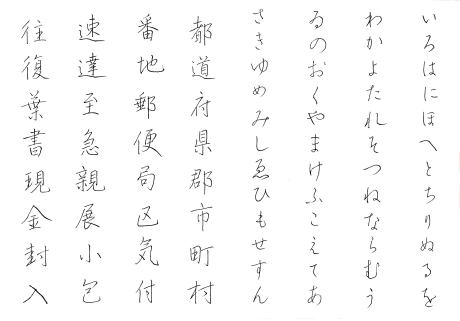 いろはにほへとちりぬるを
わかよたれそつねならむう
ゐのおくやまけふこえてあ
さきゆめみしゑひもせすん
都道府県郡市町村
番地郵便局区気付
速達至急親展小包
往復葉書現金封入